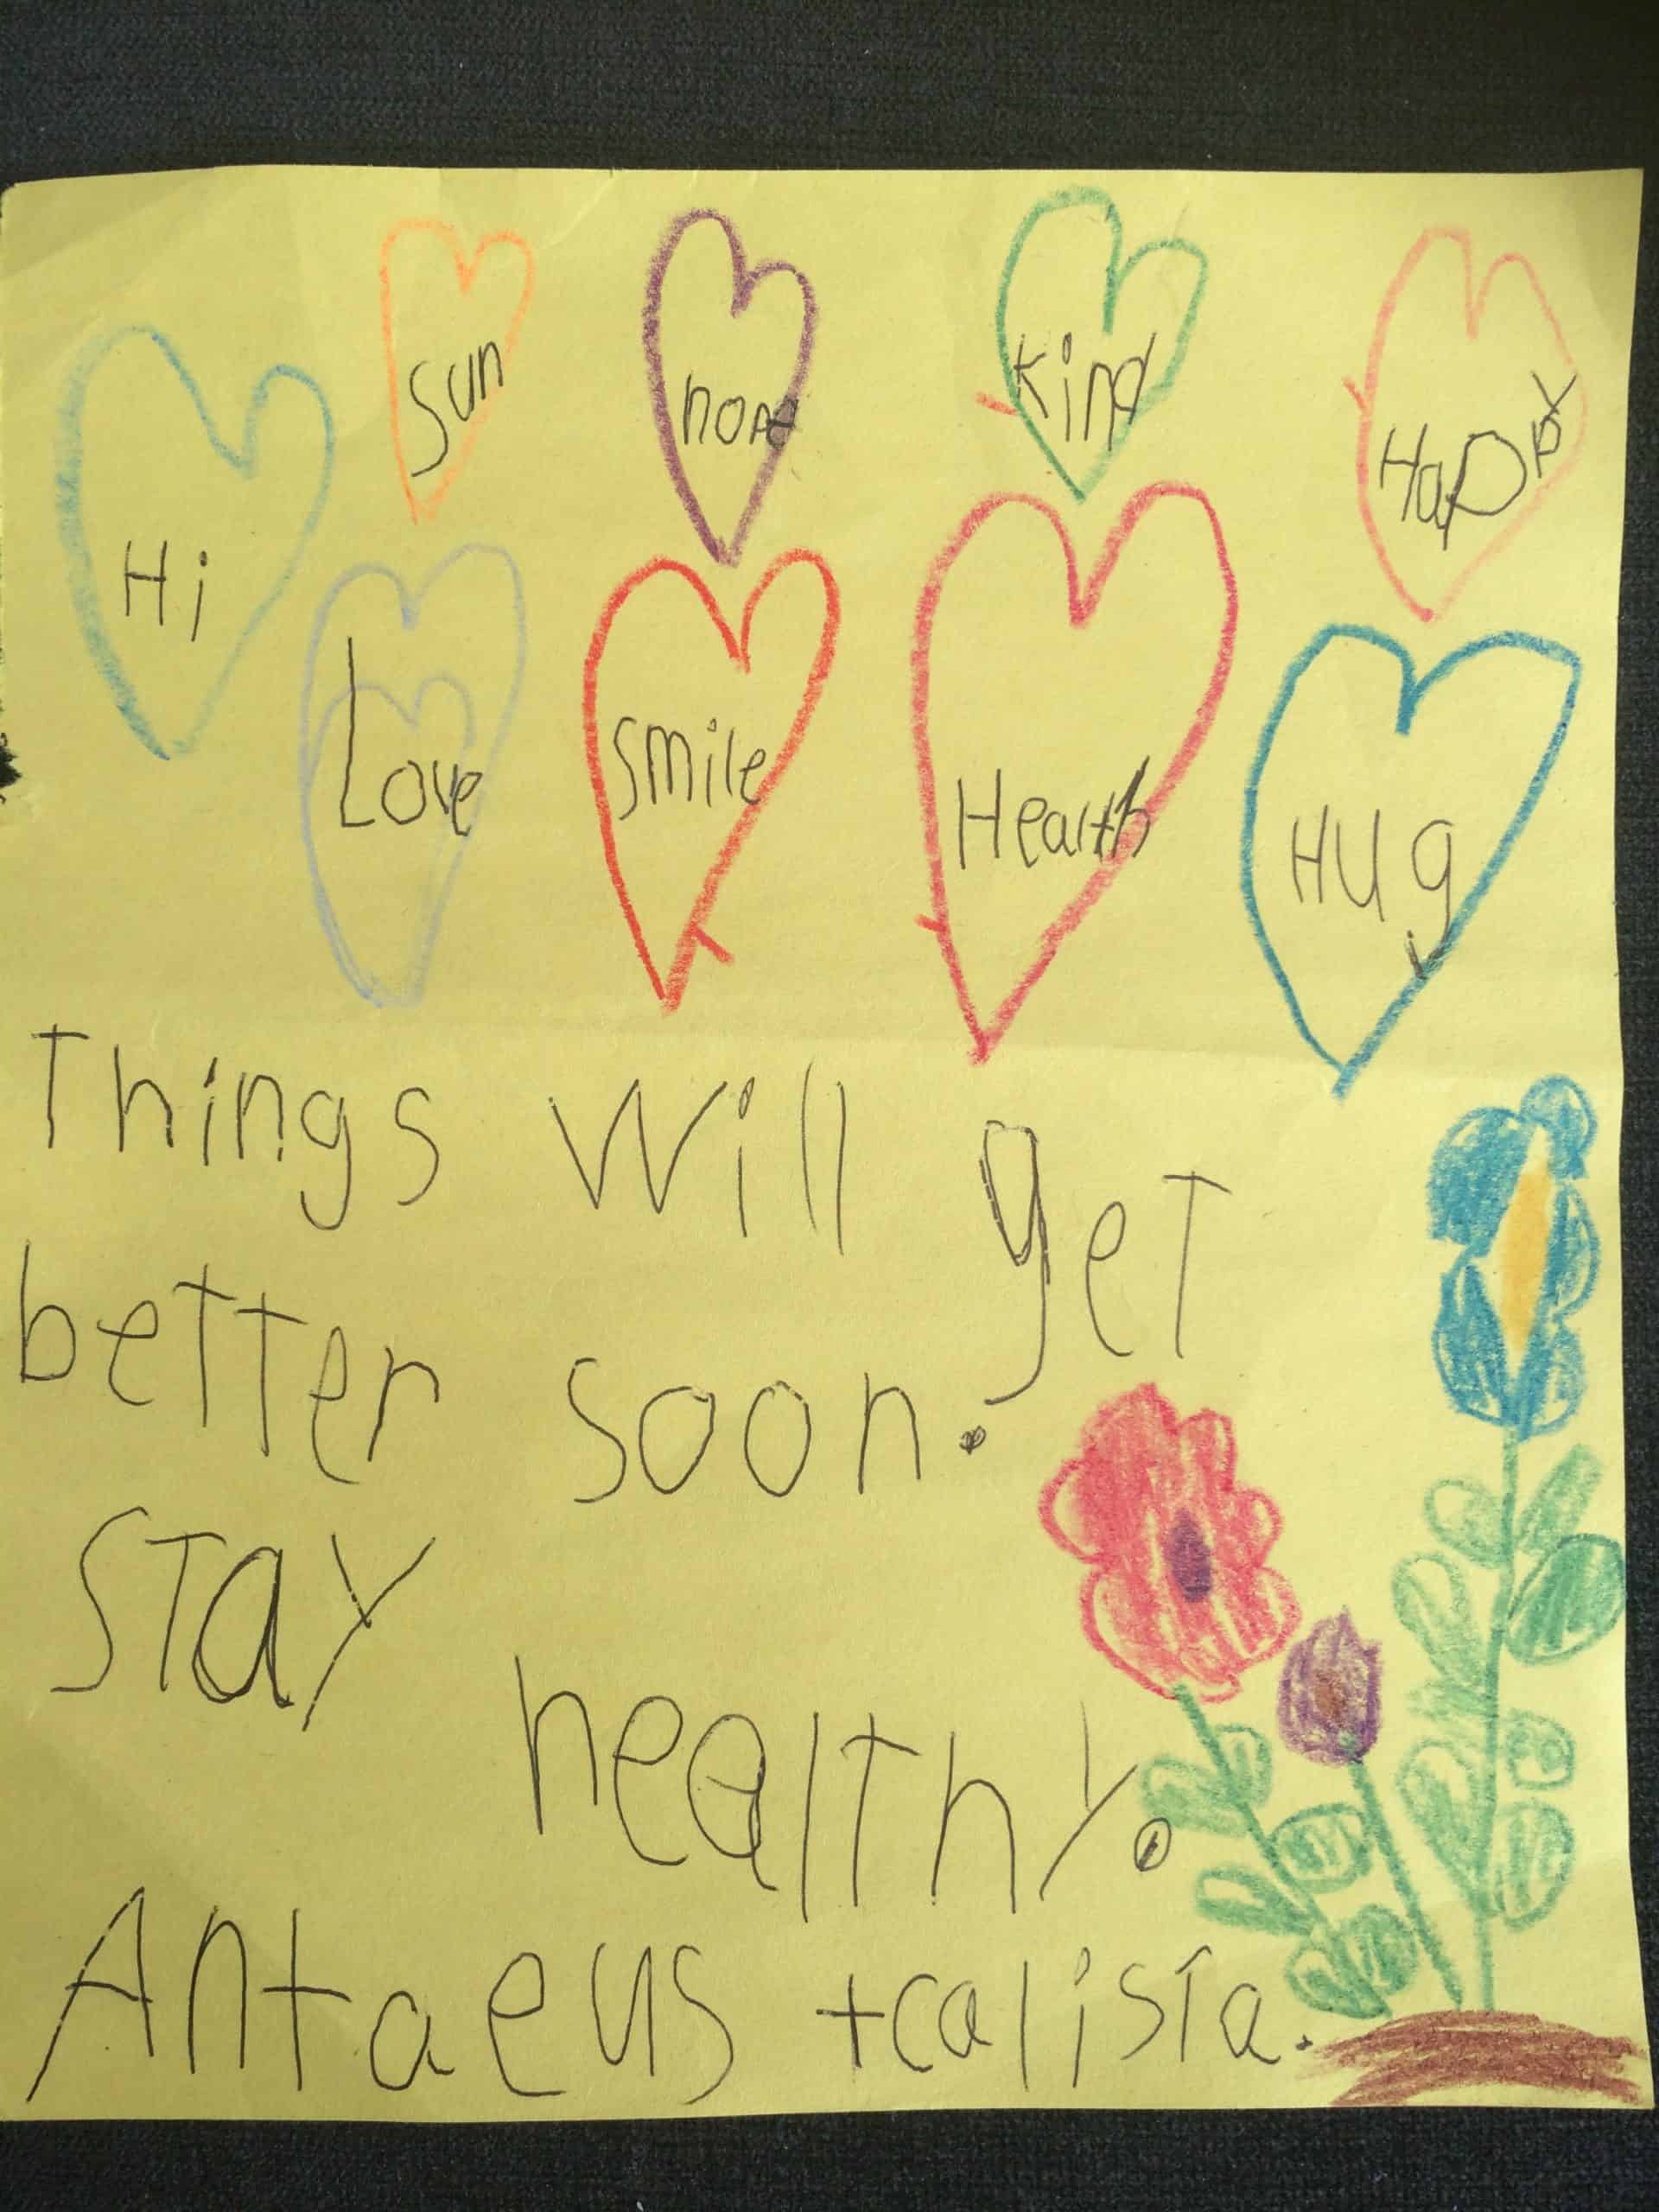 Hi
Sun
Kind
Happy
Love
Smile
Health
HUg
Things will get
better soon.
STay
healThy.
Antaeus + calisTa.